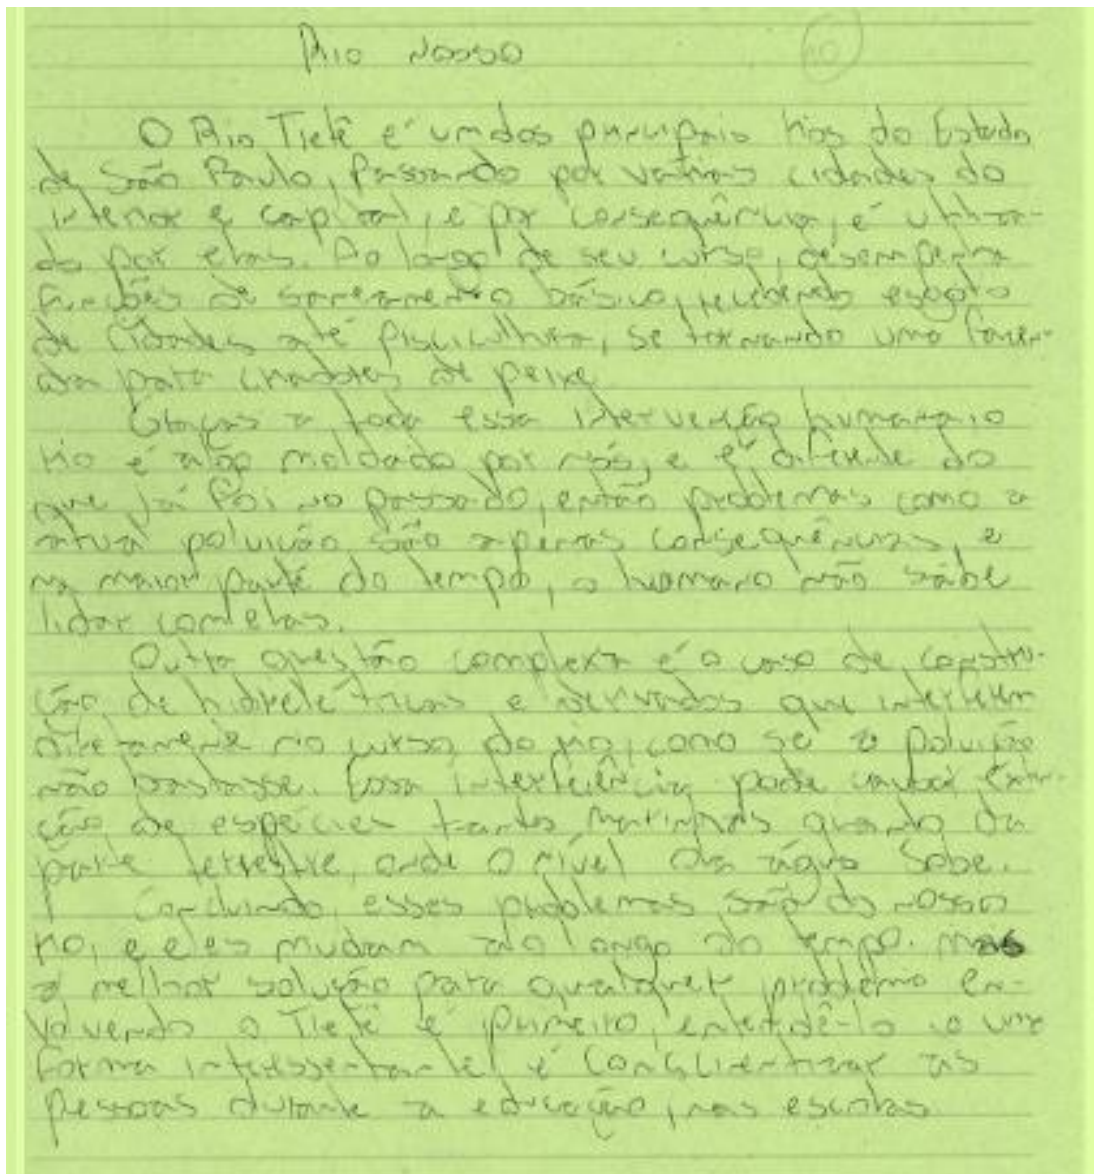 Rio Nosso
10
O Rio Tietê é um dos principais rios do Estado
de São Paulo, passando por várias cidades do
interior e capital, e por consequência, é utiliza-
do por elas. Ao longo de seu curso, desempenha
funções de saneamento básico, recebendo esgoto
de cidades até piscicultura, se tornando uma fazen-
da para criadores de peixe.
Graças a toda essa intervenção humana, o
rio é algo moldado por nós, e é diferente do
que já foi no passado, então problemas como a
atual poluição são apenas consequências, e
na maior parte do tempo, o humano não sabe
lidar com elas.
Outra questão complexa é o caso de constru-
ção de hidrelétricas e derivados que interferem
diretamente no curso do rio, como se a poluição
não bastasse. Essa interferência pode causar extin-
ção de espécies tanto marinhas quanto da
parte terrestre, onde o nível da água sobe.
Concluindo, esses problemas são do nosso
rio, e eles mudam ao longo do tempo. mas
a melhor solução para qualquer problema en-
volvendo o Tietê é primeiro, entendê-lo e uma
forma interessante é conscientizar as
pessoas durante a educação, nas escolas.